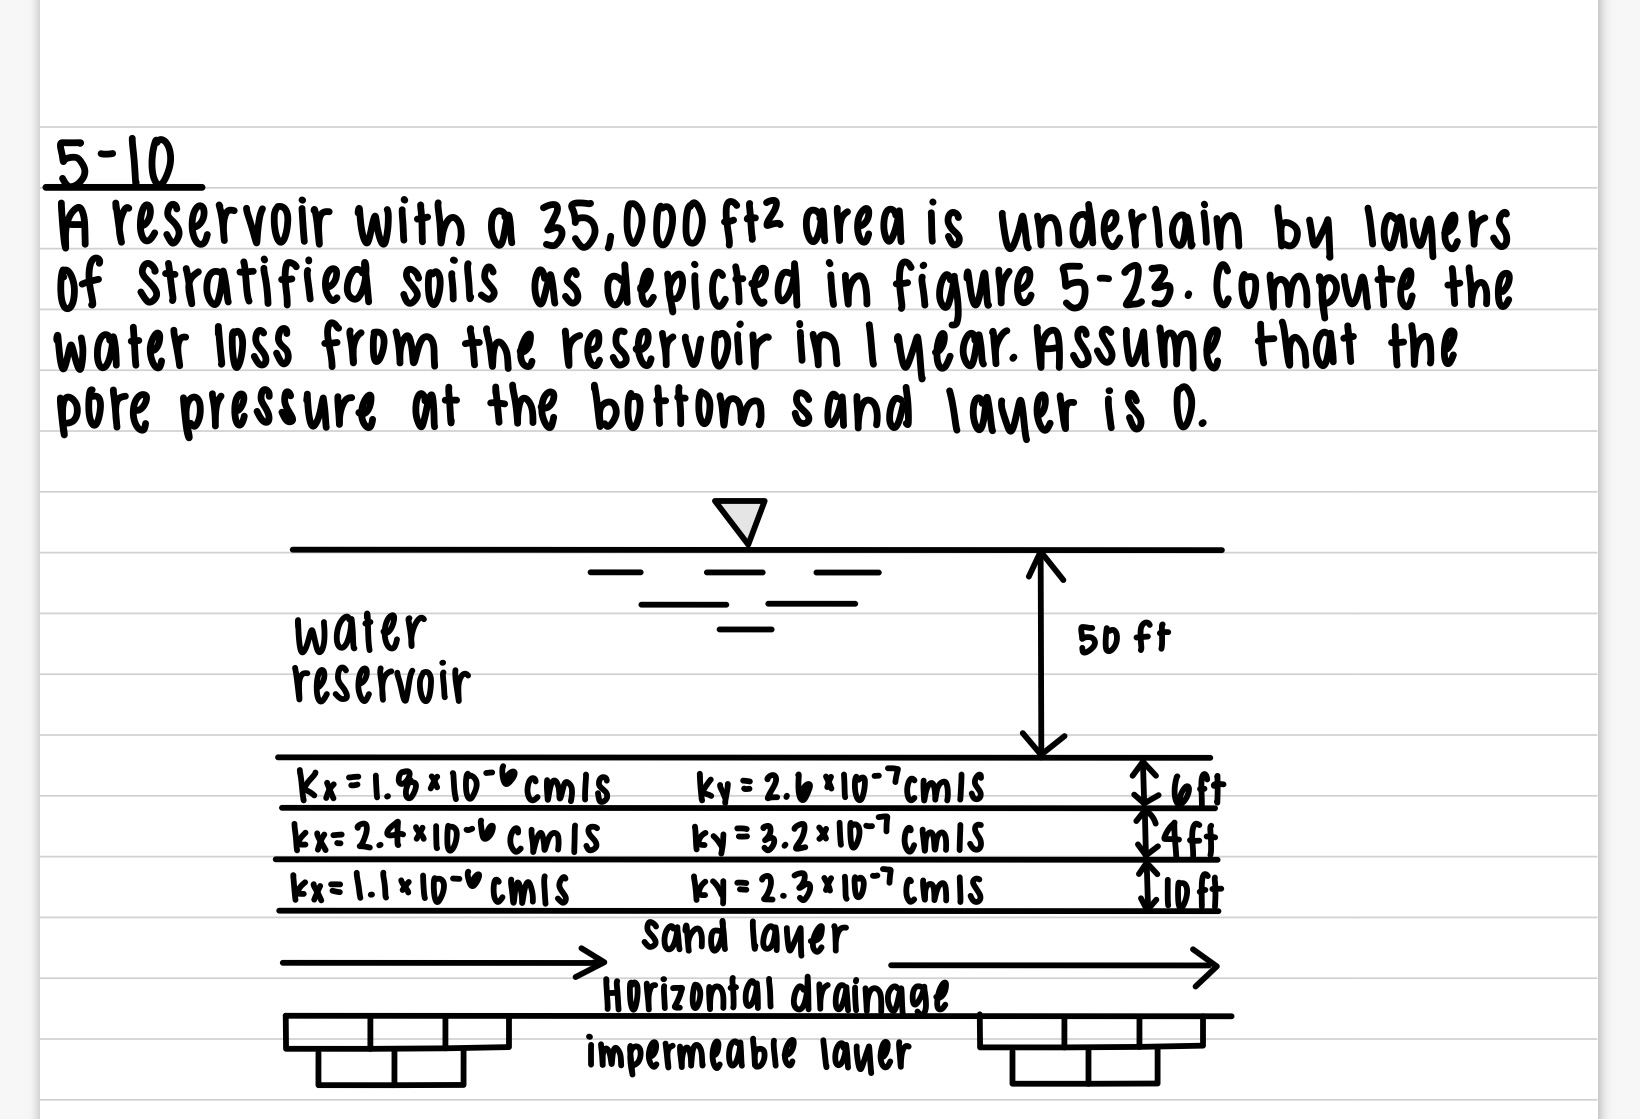 5-10
A reservoir with a 35,000 ft² area is underlain by layers
of stratified soils as depicted in figure 5-23. Compute the
water loss from the reservoir in 1 year. Assume that the
pore pressure at the bottom sand layer is 0.
water
reservoir
50 ft
Kx = 1.8 × 10⁻⁶ cm/s ky = 2.6 × 10⁻⁷ cm/s 6ft
kx = 2.4 × 10⁻⁶ cm/s ky = 3.2 × 10⁻⁷ cm/s 4ft
kx = 1.1 × 10⁻⁶ cm/s ky = 2.3 × 10⁻⁷ cm/s 10ft
sand layer
Horizontal drainage
impermeable layer